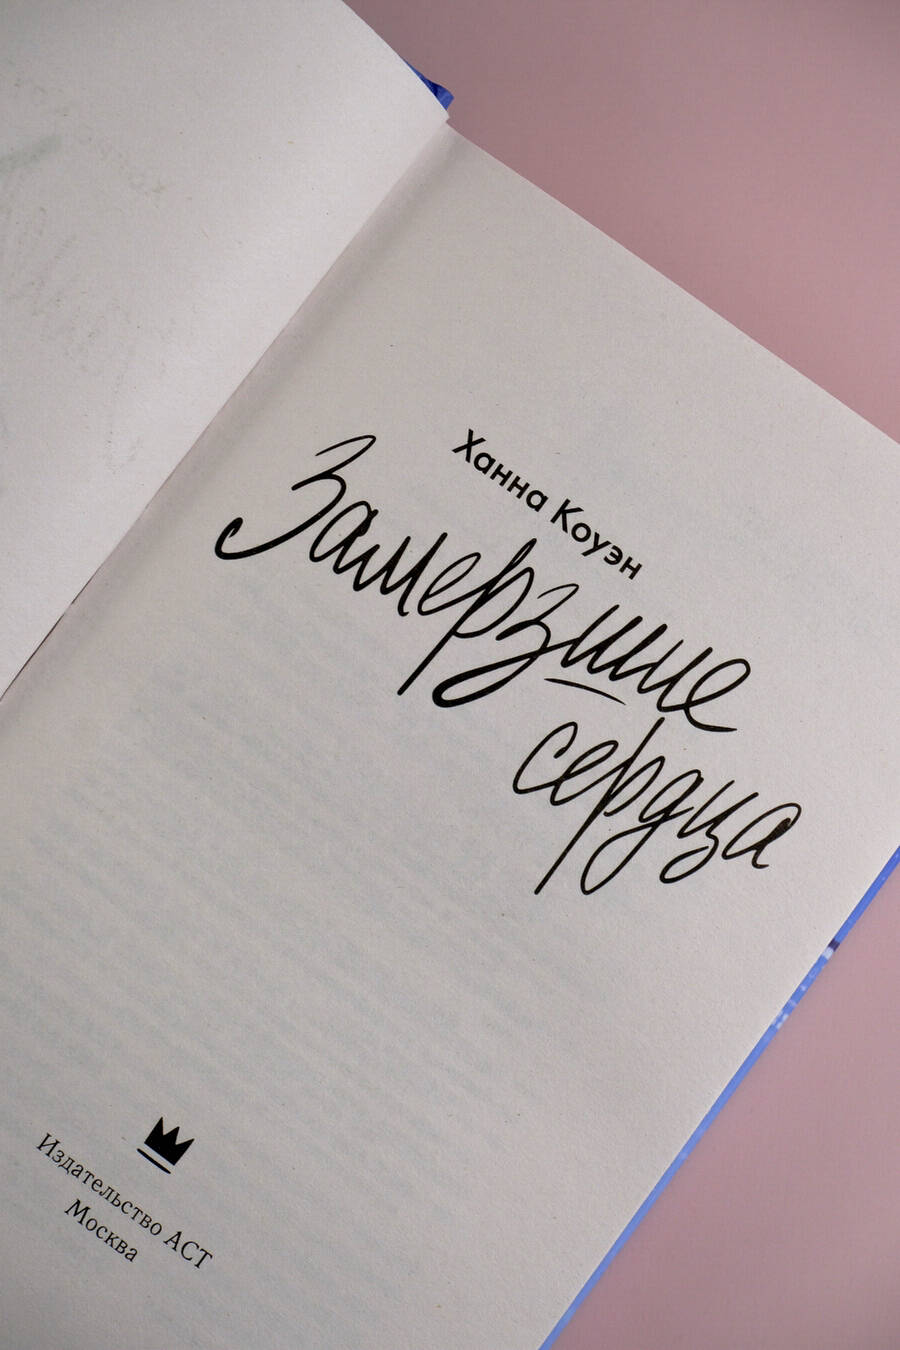 Ханна Коуэн
Замерзшие
сердца
Издательство АСТ
Москва